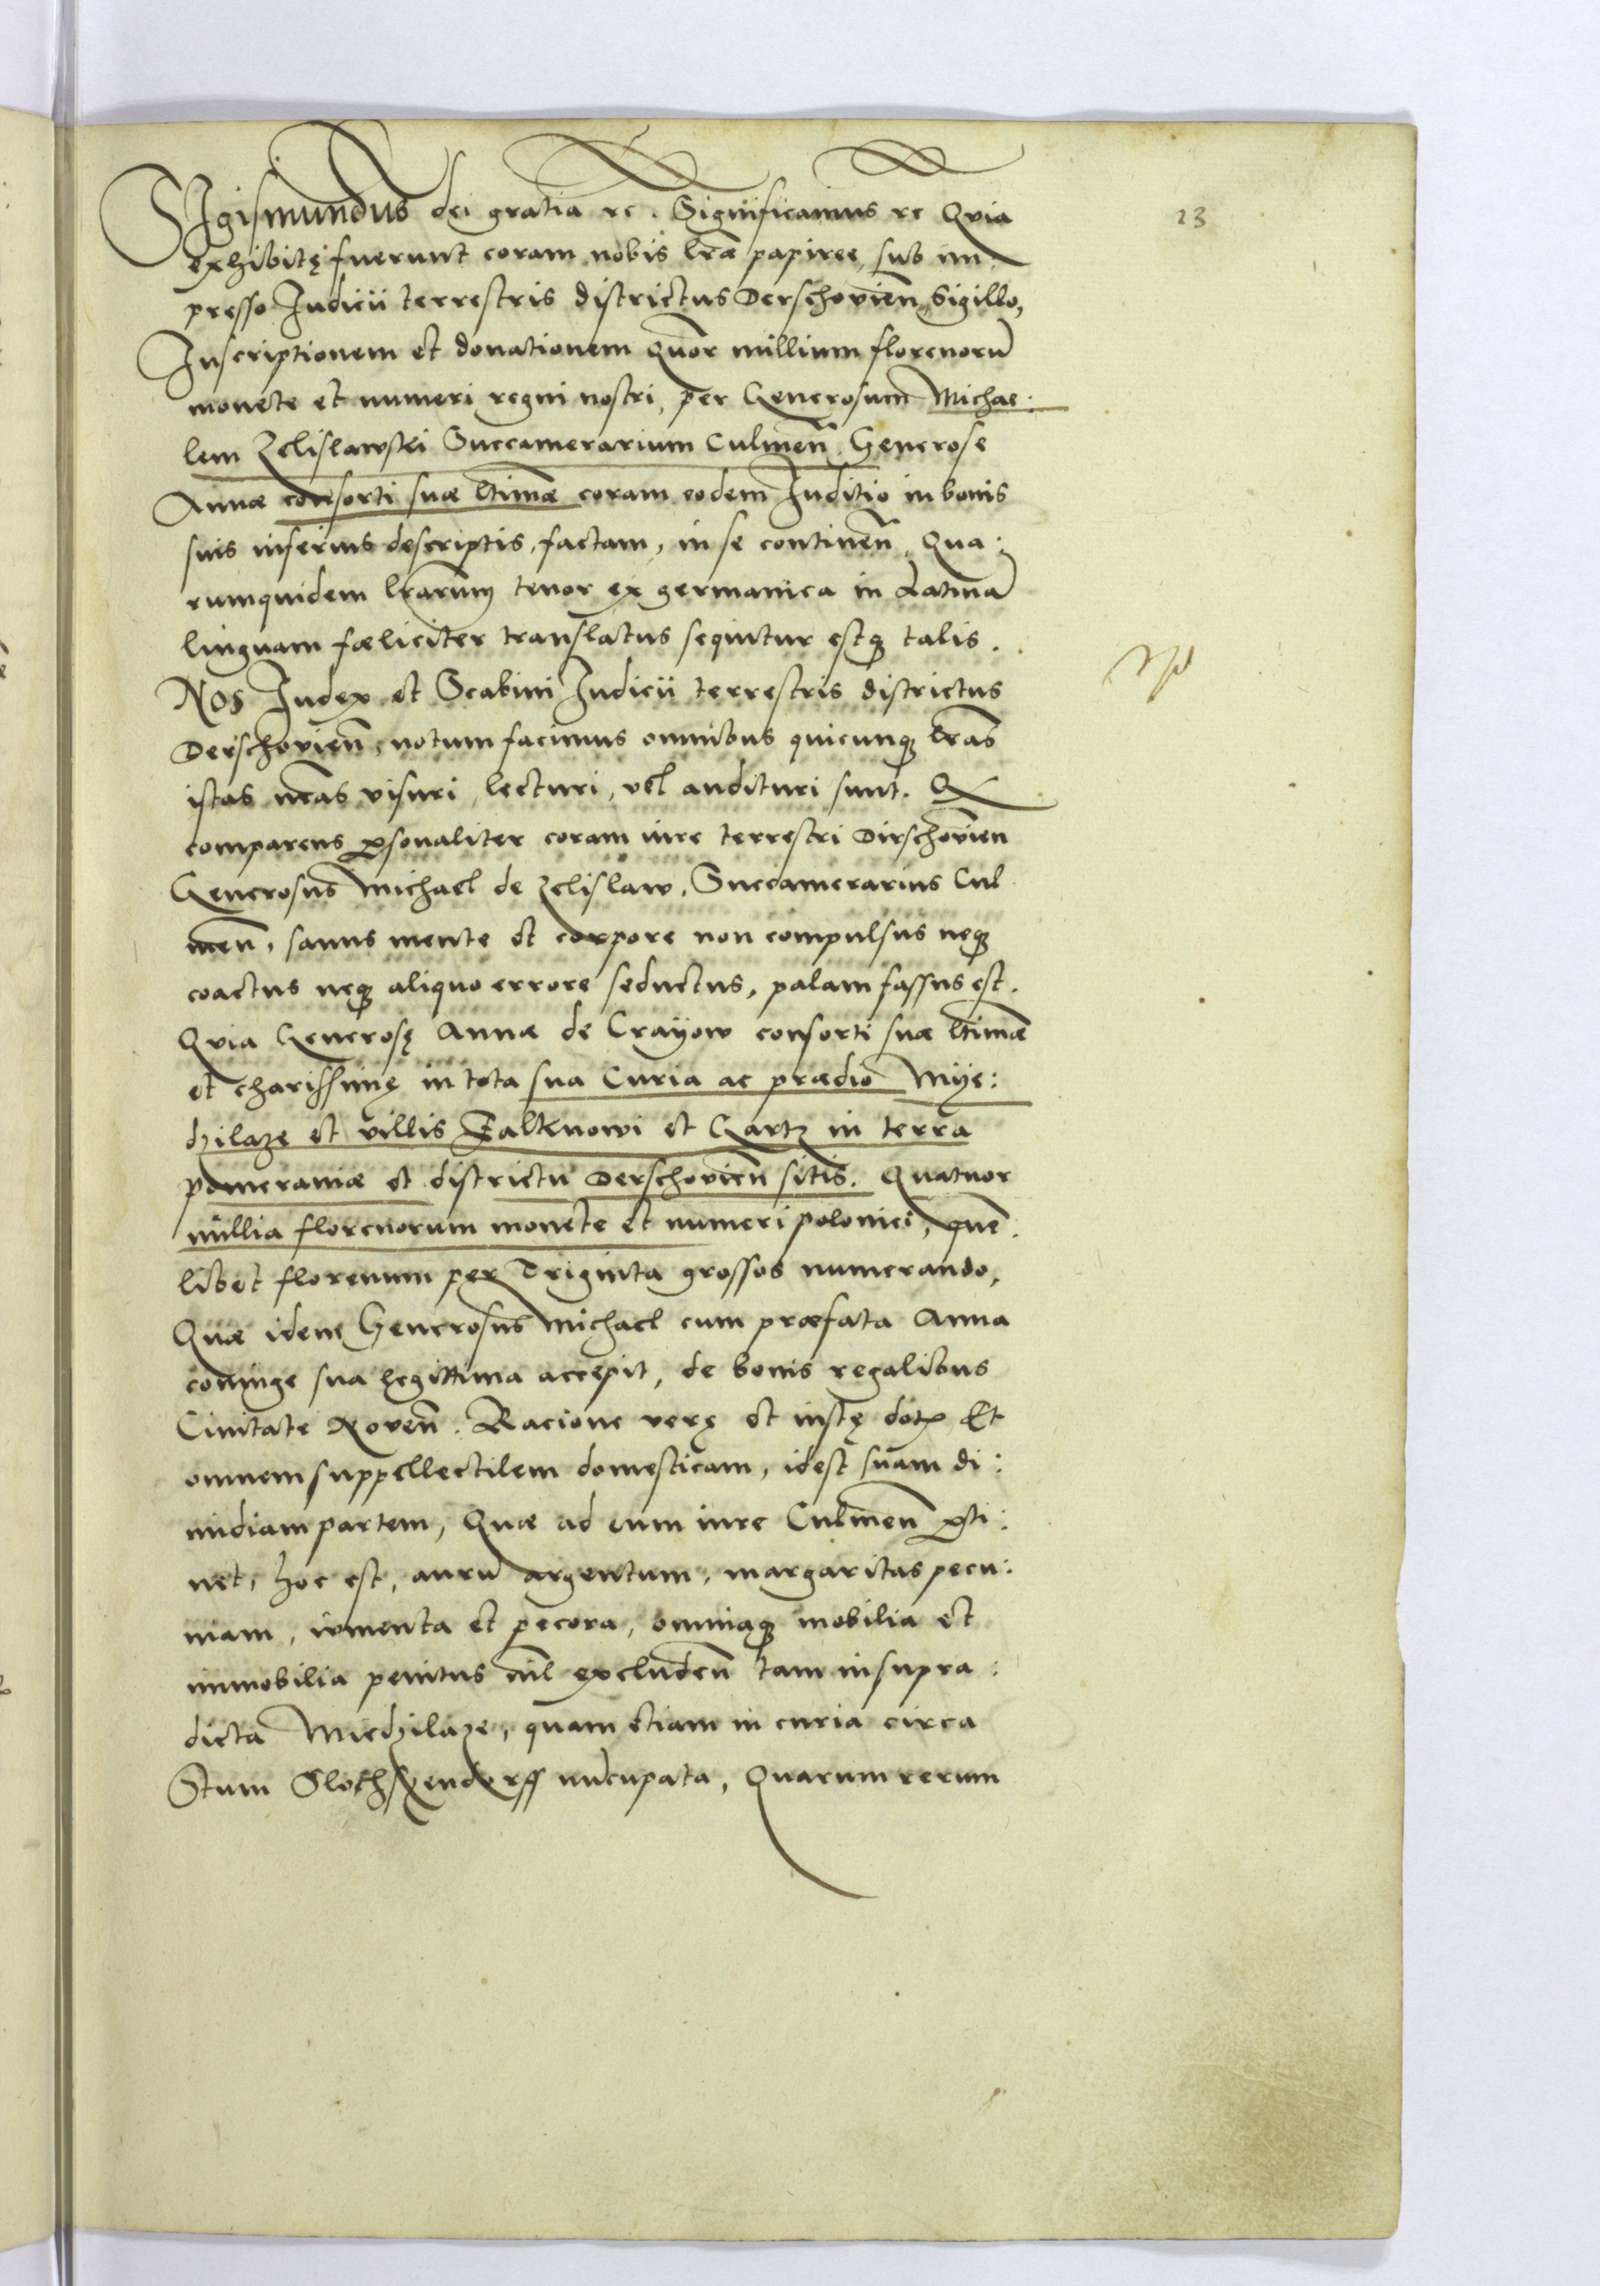 Sigismundus dei gratia rc. Significamus rc Quia
23
exhibitę fuerunt coram nobis lr̃æ papiree, sub im:
presso Judicii terrestris districtus Derschovien̄ Sigillo,
Inscriptionem et donationem quõr millium florenorū
monete et numeri regni nostri, per Generosum Michae:
lem Zelislawski Succamerarium Culmen̄ Generose
Annæ consorti suæ ltimæ coram eodem Juditio in bonis
suis inferius descriptis, factam, in se continen̄, Qua:
rumquidem lr̃arum tenor ex germanica in Latinā
linguam fœliciter translatus sequitur estq talis.
Nos Judex et Scabini Judicii terrestris districtus
Derschovien̄, notum facimus omnibus quicunq lr̃as
istas nr̃as visuri, lecturi, vel audituri sunt. Q
comparens psonaliter coram iure terrestri Dirschovien̄
Generosus Michael de Zelislaw, Succamerarius Cul
men̄, sanus mente et corpore non compulsus neq
coactus neq aliquo errore seductus, palam fassus est.
Quia Generosę Annæ de Crayow consorti suæ ltimæ
et charissimę in tota sua Curia ac prædio Mÿe:
dzilaze et villis Falknowi et Gartz in terra
pomeraniæ et districtu Derschovien̄ sitis. Quatuor
millia florenorum monete et numeri polonici, quē:
libet florenum per Triginta grossos numerando,
Quæ idem Generosus Michael cum præfata Anna
coniuge sua legittima accepit, de bonis regalibus
Civitate Noven̄. Racione verę et iustę dotis Et
omnem suppellectilem domesticam, idest suam di:
midiam partem, Quæ ad eum iure Culmen̄ pti:
net, hoc est, aurū argentum, margaritas pecu:
niam, iumenta et pecora, omniaq mobilia et
immobilia penitus nil excluden̄ tam in supra:
dicta Miedzilaze, quam etiam in curia circa
Stum nūcupata, Quarum rerum